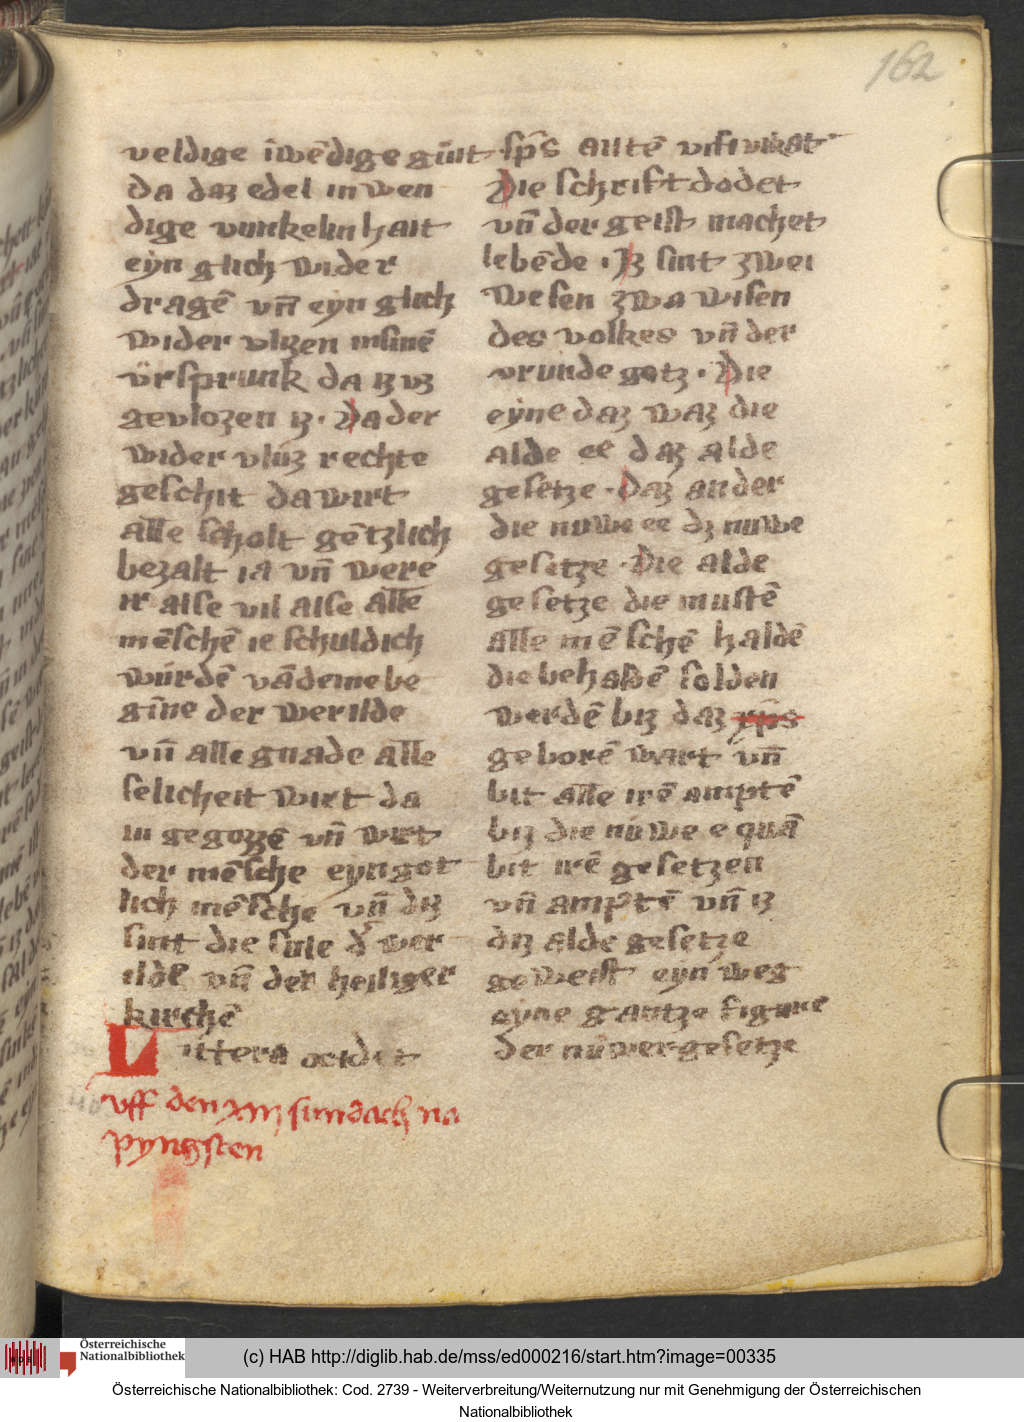 162
veldige īwēdige gūt
da daz edel in wen
dige vunkelin hait
eyn glich wider
dragē vn̄ eyn glich
wider vlizen insinē
ursprunk da iz vz
gevlozen iz · Da der
wider vluz rechte
geschit da wirt
alle scholt gētzlich
bezalt ia vn̄ were
ir alse vil alse alle
mēschē ie schuldich
wurdē vā deme be
gīne der werilde
vn̄ alle gnade alle
selicheit wirt da
in gegozzē vn̄ wirt
der mēsche eyn got
lich mēsche vn̄ diz
sint die sule d' wer
ilde vn̄ der heiliger
kirchē
Littera occidit
uff den xiij sundach na
pyngsten
sp̄s autē vifivikat
Die schrift dodet
vn̄ der geist machet
lebēde · Iz sint zwei
wesen zwa wisen
des volkes vn̄ der
vrunde gotz · Die
eyne daz waz die
alde ee daz alde
gesetze · Daz ander
die nuwe ee dz nuwe
gesetze · Die alde
gesetze die mustē
alle mēschē haldē
die behaldē solden
werdē biz daz xp̄s
geborē wart vn̄
bit alle irē amptē
biz die nuwe e quā
bit irē gesetzen
vn̄ amptē vn̄ iz
diz alde gesetze
geweist eyn weg
eyne gantze figure
der nuwer gesetze
Österreichische
Nationalbibliothek
(c) HAB http://diglib.hab.de/mss/ed000216/start.htm?image=00335
Österreichische Nationalbibliothek: Cod. 2739 - Weiterverbreitung/Weiternutzung nur mit Genehmigung der Österreichischen
Nationalbibliothek